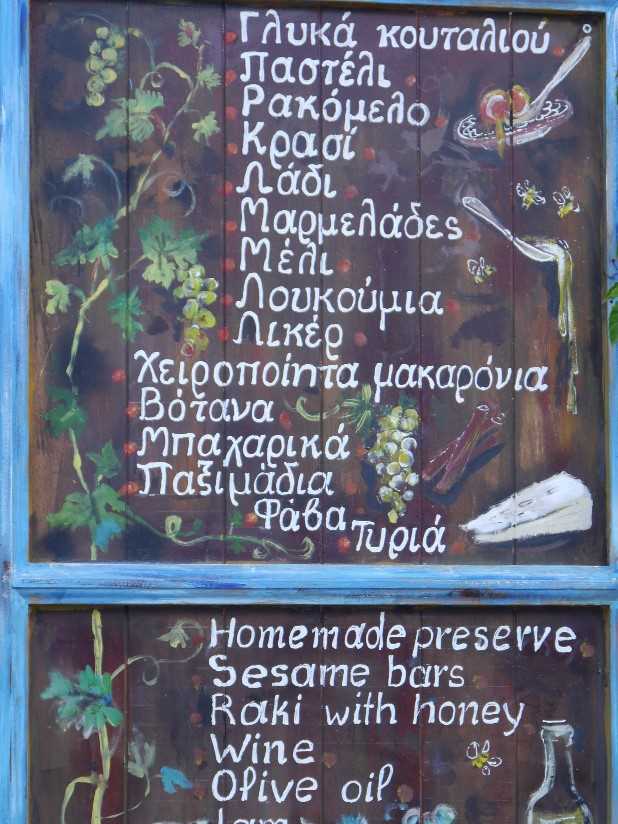 Γλυκά κουταλιού
Παστέλι
Ρακόμελο
Κρασί
Λάδι
Μαρμελάδες
Μέλι
Λουκούμια
Λικέρ
Χειροποίητα μακαρόνια
Βότανα
Μπαχαρικά
Παξιμάδια
Φάβα
Τυριά
Homemade preserve
Sesame bars
Raki with honey
Wine
Olive oil
Jam